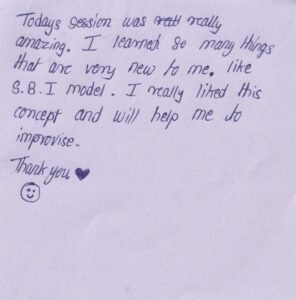 Todays session was really
amazing. I learned so many things
that are very new to me. like
S.B.I model. I really liked this
concept and will help me to
improvise.
Thank you